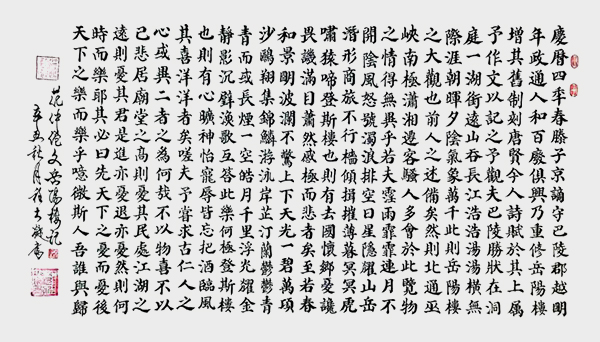 慶曆四季春滕子京謫守巴陵郡越明
年政通人和百廢俱興乃重修岳陽樓
增其舊制刻唐賢今人詩賦於其上屬
予作文以記之予觀夫巴陵勝狀在洞
庭一湖銜遠山吞長江浩浩湯湯橫無
際涯朝暉夕陰氣象萬千此則岳陽樓
之大觀也前人之述備矣然則北通巫
峽南極瀟湘遷客騷人多會於此覽物
之情得無異乎若夫霪雨霏霏連月不
開陰風怒號濁浪排空日星隱耀山岳
潛形商旅不行檣傾楫摧薄暮冥冥虎
嘯猿啼登斯樓也則有去國懷鄉憂讒
畏譏滿目蕭然感極而悲者矣至若春
和景明波瀾不驚上下天光一碧萬頃
沙鷗翔集錦鱗游泳岸芷汀蘭鬱鬱青
青而或長煙一空皓月千里浮光耀金
靜影沉璧漁歌互答此樂何極登斯樓
也則有心曠神怡寵辱皆忘把酒臨風
其喜洋洋者矣嗟夫予嘗求古仁人之
心或異二者之為何哉不以物喜不以
己悲居廟堂之高則憂其民處江湖之
遠則憂其君是進亦憂退亦憂然則何
時而樂耶其必曰先天下之憂而憂後
天下之樂而樂乎噫微斯人吾誰與歸
范仲淹文岳陽樓記
辛丑秋月書